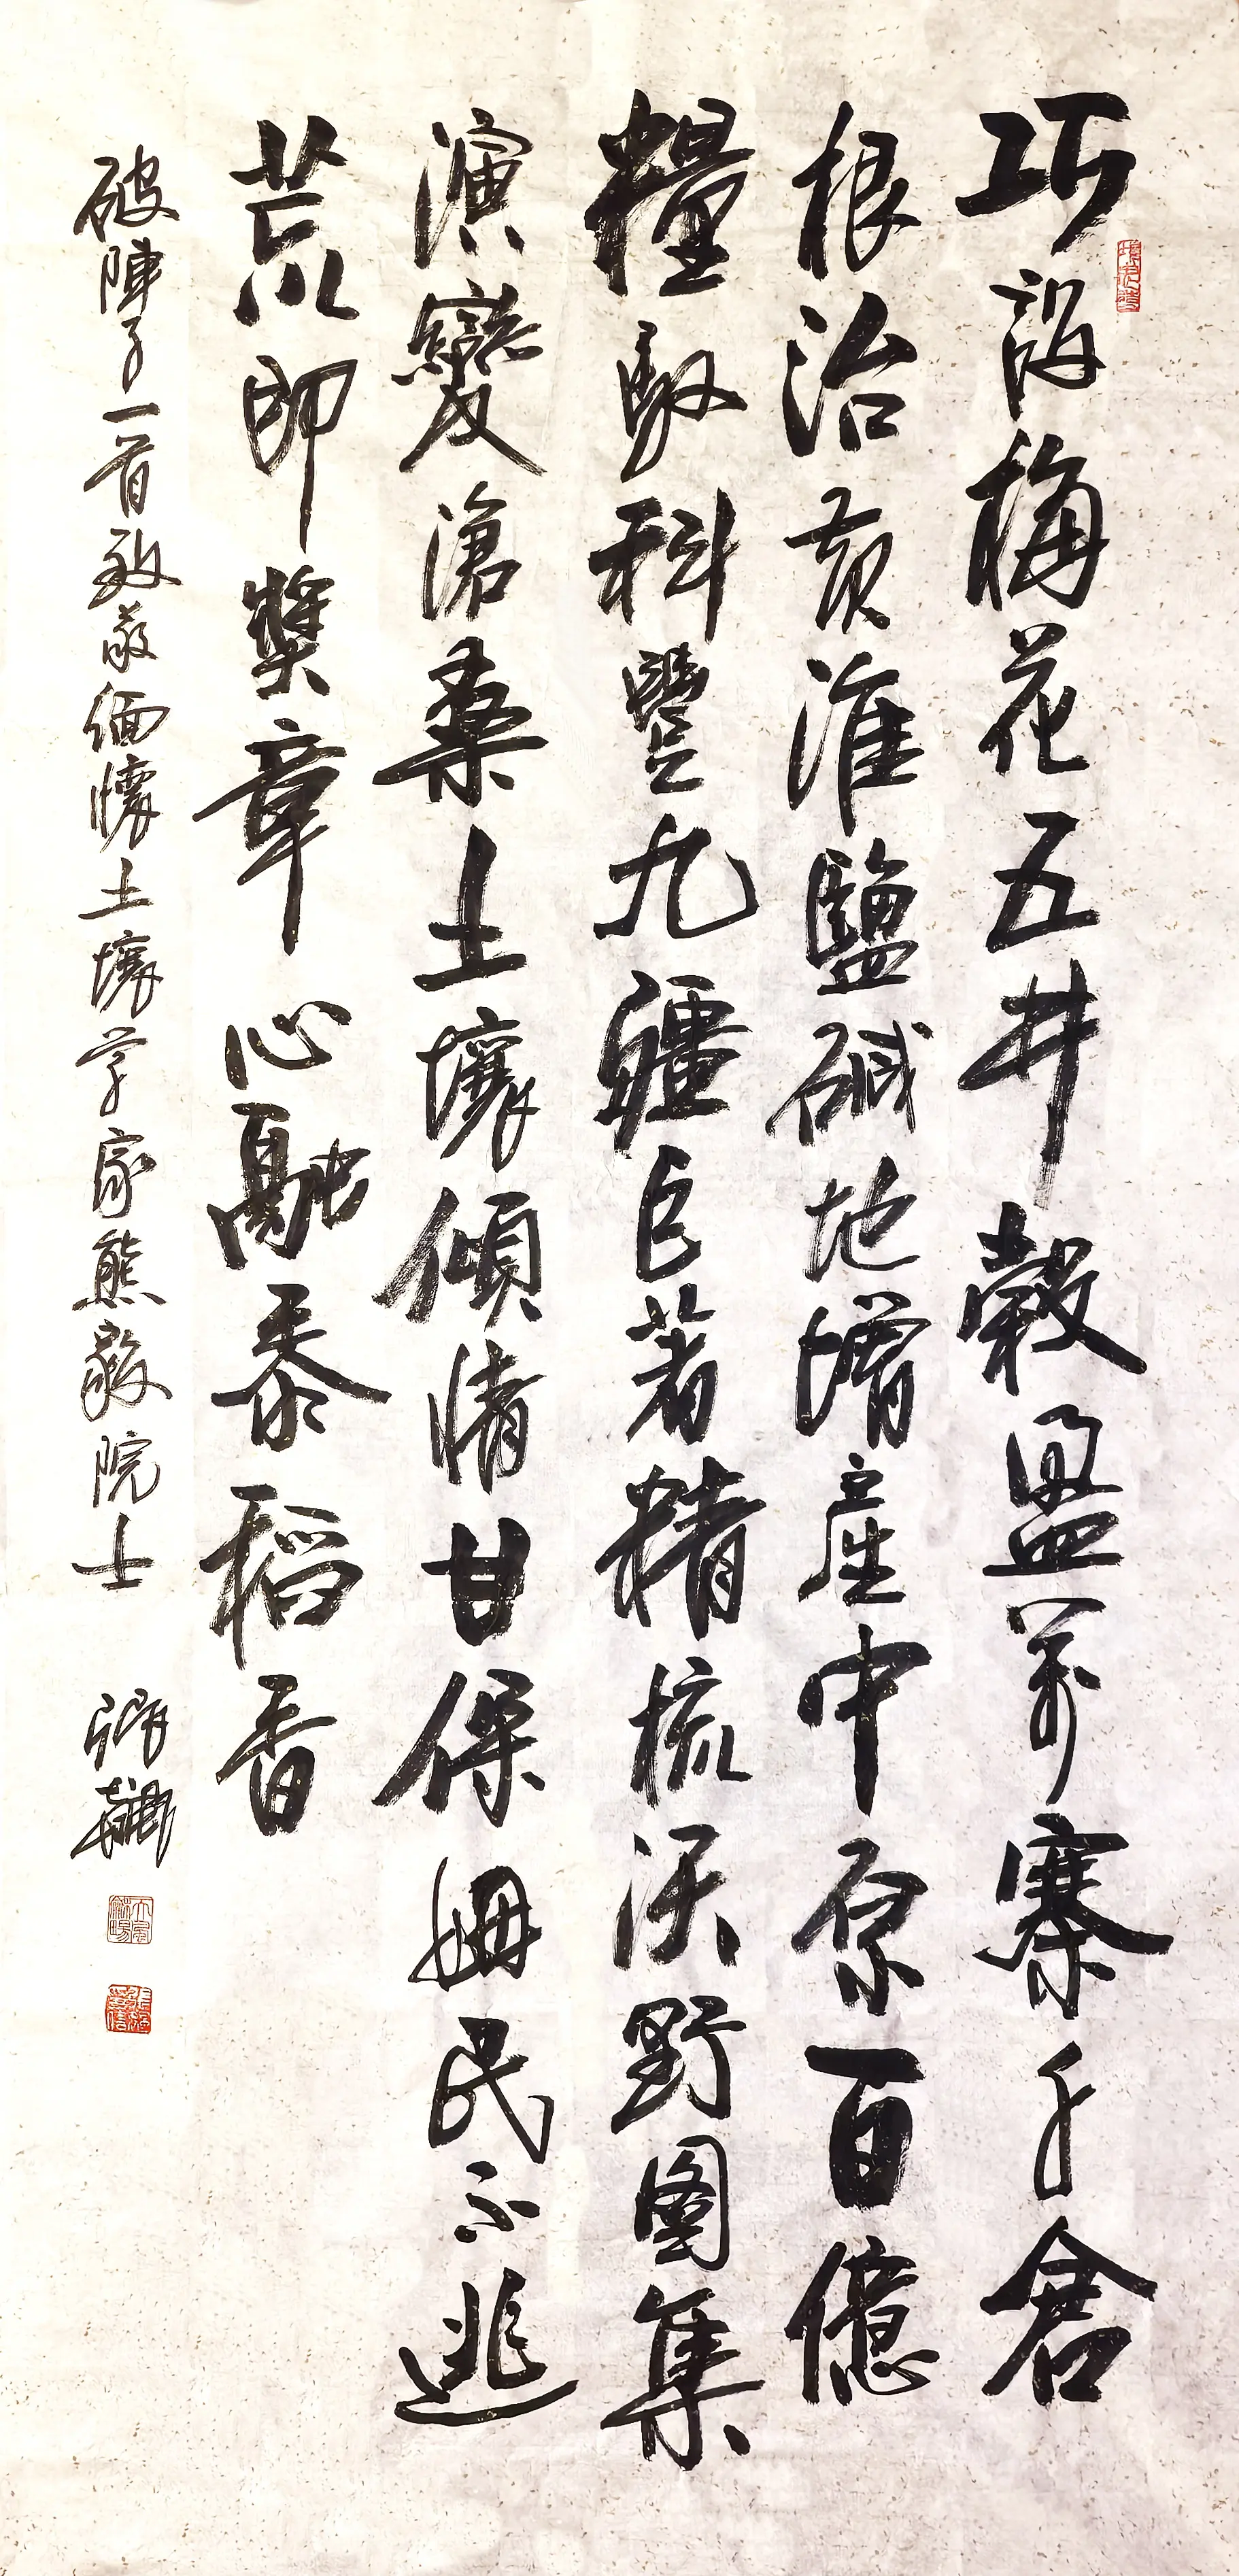 巧設梅花五井穀盈萬寨千倉
根治黃淮鹽碱地增產中原百億
糧馭科豐九疆巨著精梳沃野圖集
演變滄桑土壤傾情甘保姆民不逃
荒即獎章心融黍稻香
破陣子一首致敬緬懷土壤学家熊毅院士